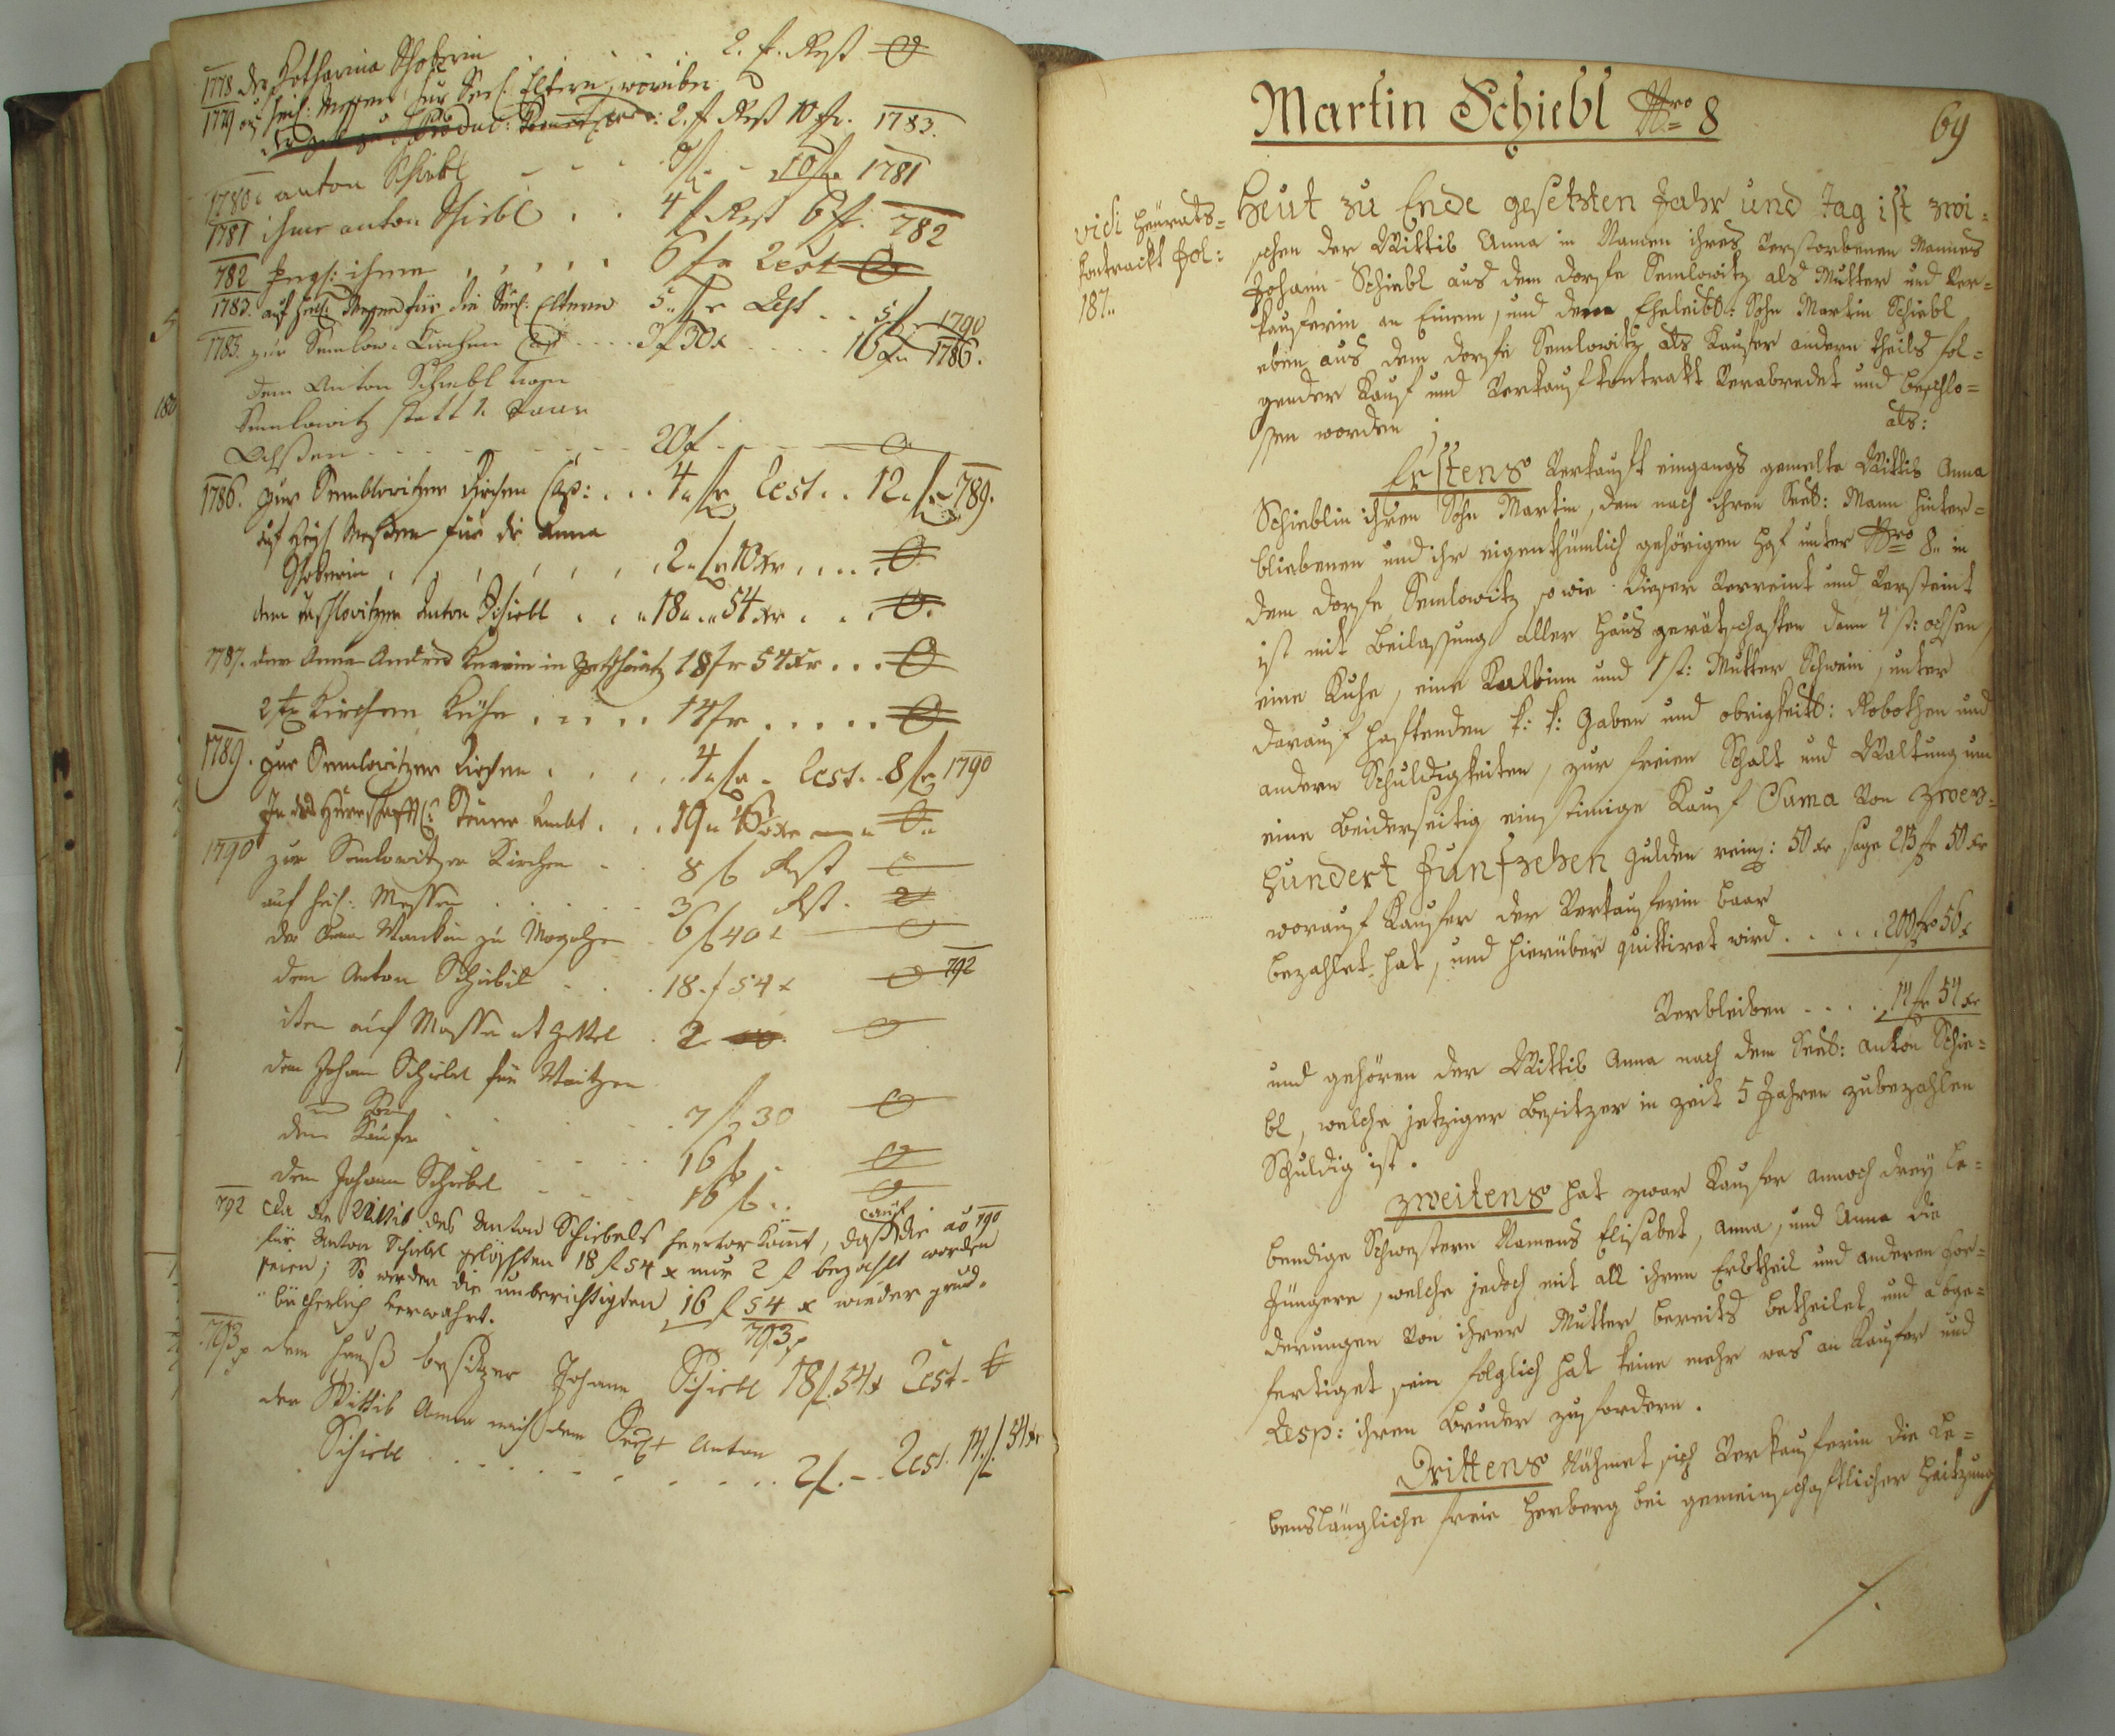 1778 der Katharina Schoberin . . . . 2. f. Rest
1779 auf heil: Messen für Seel: Eltern, worüber
2. f Rest 10 fr. 1783.
1780 anton Schiebl - - - 10 fr 1781
1781 ihme anton Schiebl . . 4 f Rest 6 fr. 782
782 ihme . . . . . 6 fr Rest
1783. auf heil: Messen für die Seel: Eltern 5 fr Rest . . 5 f 1790
1785. zur Semlow: Kirchen Cap .... 3 f 30 x ..... 16 fr 1786.
dem Anton Schiebl von
Semlowitz statt 1. Paar
Ochsen - - - - - - - 20 f - - -
1786. zur Semblowitzer Kirchen Cap: . . . 4 fr Rest . . 12 fr 789.
auf heyl Messen für die Anna
Schoberin , , , , , , 2 fr 10 xr . . . .
dem Anton Schiebl . . . 18 .. 54 xr . . .
1787. der Anna Andres in 18 fr 54 xr . . .
2 Kirchen Kühe . . . . . 14 fr . . . . .
1789. zur Semlowitzer Kirchen . . . . 4 fr - Rest - 8 fr 1790
In das Herrschaftl: Steuer Ambt . . . 19
1790 zur Semlowitzer Kirchen - - 8 f Rest
auf heil: Messen . . . . . 3 Rst.
der Anna zu 6 f 40 x
dem Anton Schiebl - - . 18 f 54 x 792
item auf Messen . 2
dem Johann Schiebel für Waitzen
und Korn . . . . . 7 f 30
dem Käufer - - - - 16 f -
dem Johann Schiebel - - - 16 f ..
792 Da die Wittib des Anton Schiebels hervor kömt, daß die ao 790 auf
für Anton Schiebel gelöschten 18 f 54 x nur 2 f bezahlt worden
seien; So werden die unberichtigten 16 f 54 x wieder grund-
bücherlich verwahrt. 793
793 dem Hauß besitzer Johann Schiebl 18 f. 54 x Rest -
der Wittib Anna nach dem Seel: Anton
Schiebl . . . . . . . . . 2 f. - Rest. 14 f 54 xr
Martin Schiebl Nro 8
69
vidi Heurats=
kontrackt fol:
187..
Heut zu Ende gesetzten Jahr und Tag ist zwi=
schen der Wittib Anna in Namen ihres Verstorbenen Mannes
Johann Schiebl aus dem Dorfe Semlowitz als Mutter und Ver=
kauferin an Einem, und dem Eheleibl: Sohn Martin Schiebl
eben aus dem Dorfe Semlowitz als Kaufer andern Theils fol=
gender Kauf und Verkaufkontrakt Verabredet und beschlo=
ssen worden ; als:
Erstens Verkauft eingangs gemelte Wittib Anna
Schieblin ihren Sohn Martin, den nach ihren Seel: Mann hinter=
bliebenen und ihr eigenthümlich gehörigen Hof unter Nro 8.. in
dem Dorfe Semlowitz so wie dieser Verreint und Versteint
ist mit Beilassung aller Haus gerätschaften dann 4 st: ochsen,
eine Kuhe, eine Kalbinn und 1 st: Mutter Schwein, unter
darauf haftenden k: k: Gaben und obrigkeitl: Robothen und
andern Schuldigkeiten, zur freien Schalt und Waltung um
eine Beiderseitig einstimige Kauf Suma Von Zwey=
hundert Funfzehen Gulden reinl: 50 xr sage 215 fr 50 xr
worauf Kaufer der Verkauferin Baar
bezahlet hat, und hierüber quittiret wird . . . . . 200 fr 56 x
Verbleiben . . . . 14 fr 54 xr
und gehören der Wittib Anna nach dem Seel: Anton Schie=
bl, welche jetziger Besitzer in Zeit 5 Jahren zubezahlen
Schuldig ist.
Zweitens hat zwar Kaufer annoch drey Le=
bendige Schwestern Namens Elisabet, Anna, und Anna die
Jüngere, welche jedoch mit all ihren Erbtheil und anderen For=
derungen Von ihrer Mutter bereits betheilet und abge=
fertiget sein folglich hat keine mehr was an Kaufer und
Resp: ihren Bruder zufordern.
Drittens Nähmet sich Verkauferin die Le=
benslängliche freie Herberg bei gemeinschaftlicher Heitzung